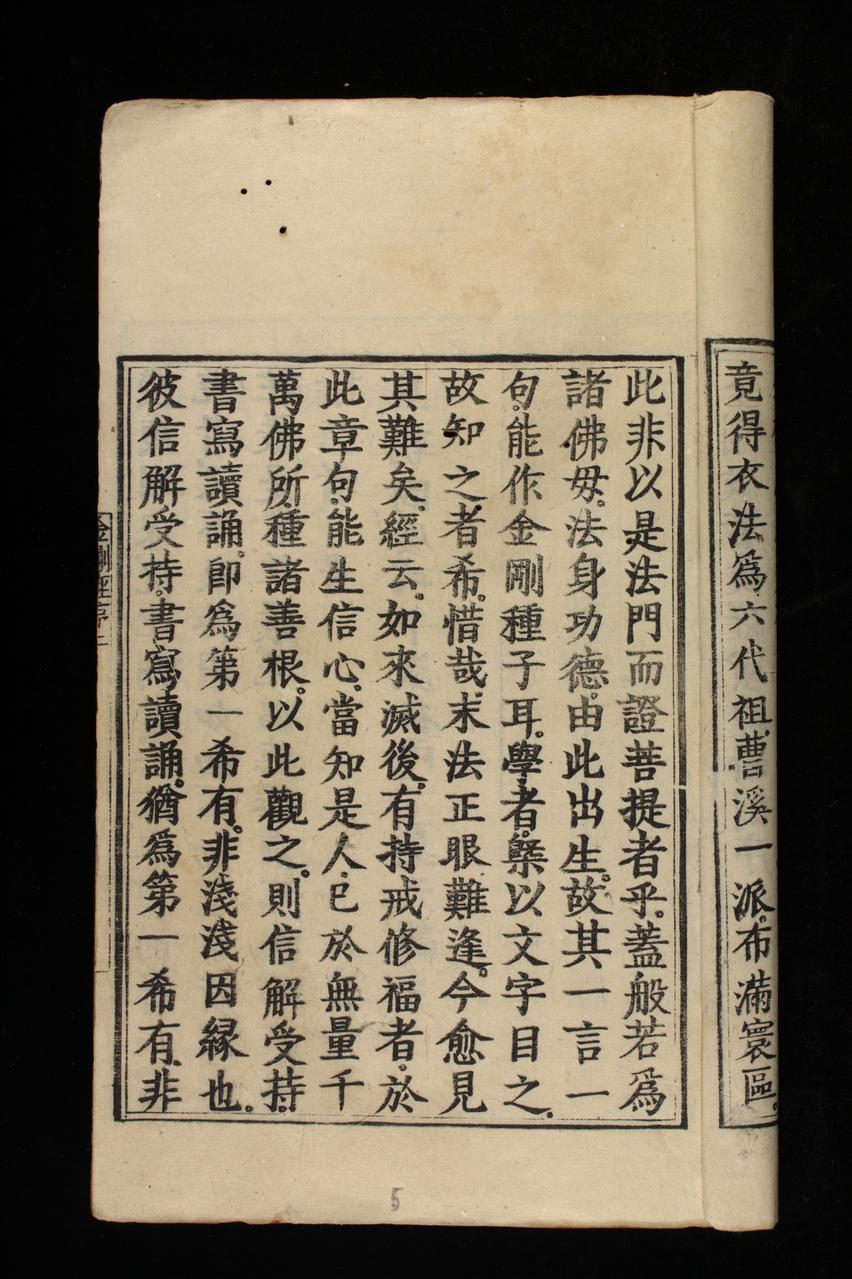 竟得衣法爲六代祖曹溪一派布滿寰區。
此非以是法門而證菩提者乎。蓋般若爲
諸佛母。法身功德。由此出生。故其一言一
句。能作金剛種子耳。學者。槩以文字目之。
故知之者希。惜哉。末法正眼難逢。今愈見
其難矣。經云。如來滅後。有持戒修福者。於
此章句。能生信心。當知是人。已於無量千
萬佛所。種諸善根。以此觀之。則信解受持。
書寫讀誦。即爲第一希有。非淺淺因緣也。
彼信解受持。書寫讀誦。猶爲第一希有。非
金剛經序
5